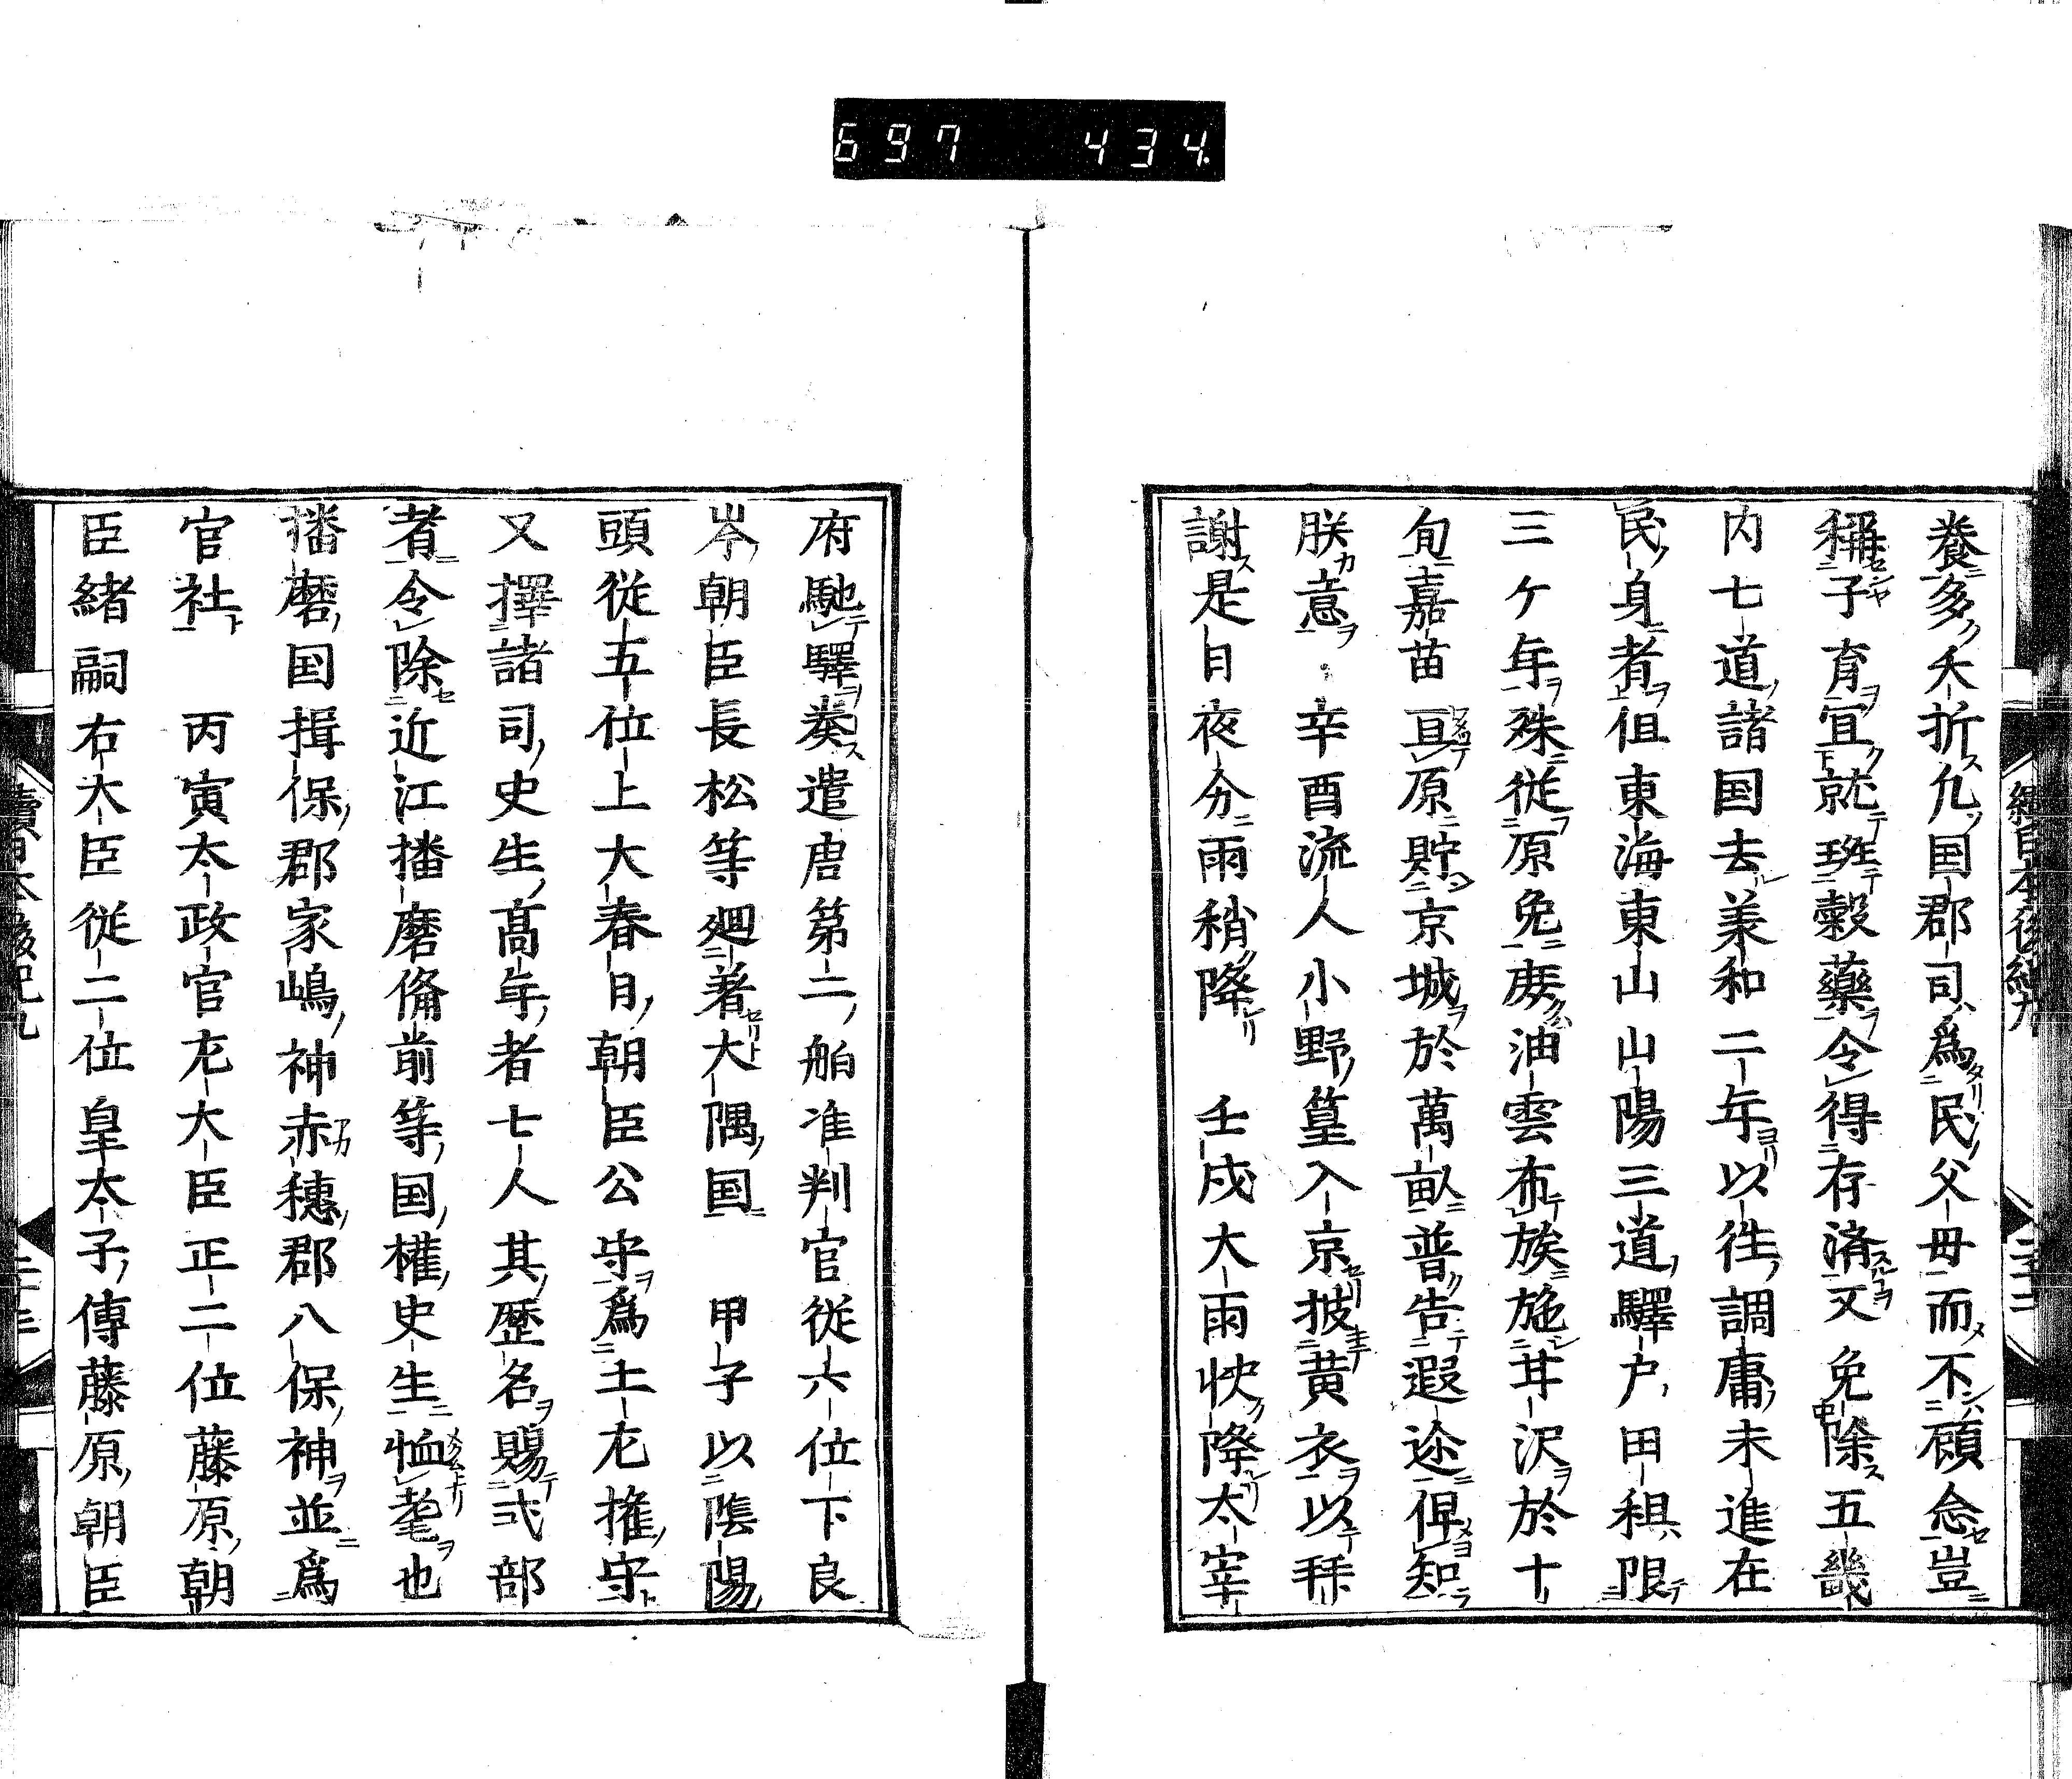 697 434.
養多夭折凢国郡司為民父母而不顧念豈
稱子育宜就班穀藥令得存済又免除五畿
内七道諸国去羕和二年以徃調庸未進在
民身者但東海東山山陽三道驛戸田租限
三ケ年殊従原免庻油雲布族施甘沢於十
旬嘉苗亘原貯京城於萬畝普告遐迩俾知
朕意 辛酉流人小野篁入京披黄衣以拜
謝是日夜分雨稍降 壬戌大雨快降太宰
府馳驛奏遣唐第二舶准判官従六位下良
岑朝臣長松等廻著大隅国 甲子以陰陽
頭従五位上大春日朝臣公守為土左権守
又擇諸司史生髙年者七人其歴名賜式部
者令除近江播磨俻前等国權史生恤耄也
播磨国揖保郡家嶋神赤穗郡八保神並為
官社 丙寅太政官左大臣正二位藤原朝
臣緒嗣右大臣従二位皇太子傳藤原朝臣